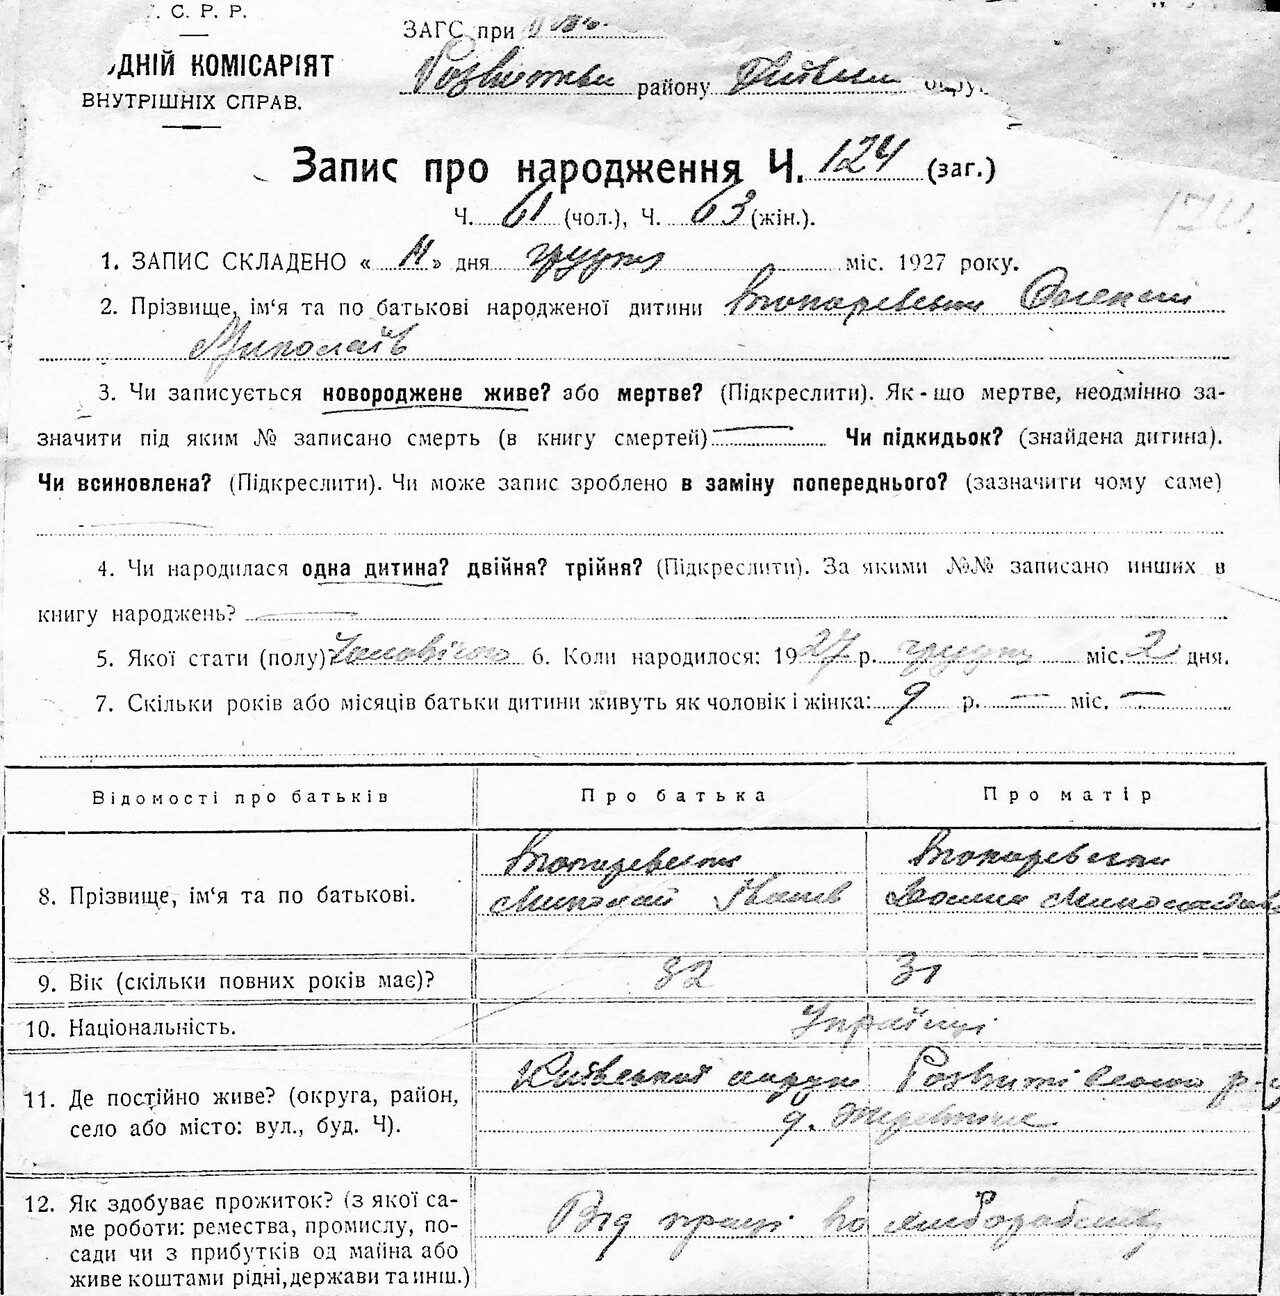 . С. Р. Р.
ДНІЙ КОМІСАРІЯТ
ВНУТРІШНІХ СПРАВ.
ЗАГС при
району округ
Запис про народження Ч. 124 (заг.)
Ч. 61 (чол.), Ч. 63 (жін.).
124.
1. ЗАПИС СКЛАДЕНО « 11 » дня грудня міс. 1927 року.
2. Прізвище, ім'я та по батькові народженої дитини Олексій
Миколаїв
3. Чи записується новороджене живе? або мертве? (Підкреслити). Як-що мертве, неодмінно за-
значити під яким № записано смерть (в книгу смертей) — Чи підкидьок? (знайдена дитина).
Чи всиновлена? (Підкреслити). Чи може запис зроблено в заміну попереднього? (зазначити чому саме)
—
4. Чи народилася одна дитина? двійня? трійня? (Підкреслити). За якими №№ записано инших в
книгу народжень? —
5. Якої стати (полу)? 6. Коли народилося: 1927 р. грудня міс. 2 дня.
7. Скільки років або місяців батьки дитини живуть як чоловік і жінка: 9 р. — міс. —
Відомості про батьків Про батька Про матір
8. Прізвище, ім'я та по батькові. Миколай Іванів
9. Вік (скільки повних років має)? 32 31
10. Національність. Українці
11. Де постійно живе? (округа, район,
село або місто: вул., буд. Ч). Київської округи
12. Як здобуває прожиток? (з якої са-
ме роботи: ремества, промислу, по-
сади чи з прибутків од майна або
живе коштами рідні, держави та инш.) Від праці по хліборобству